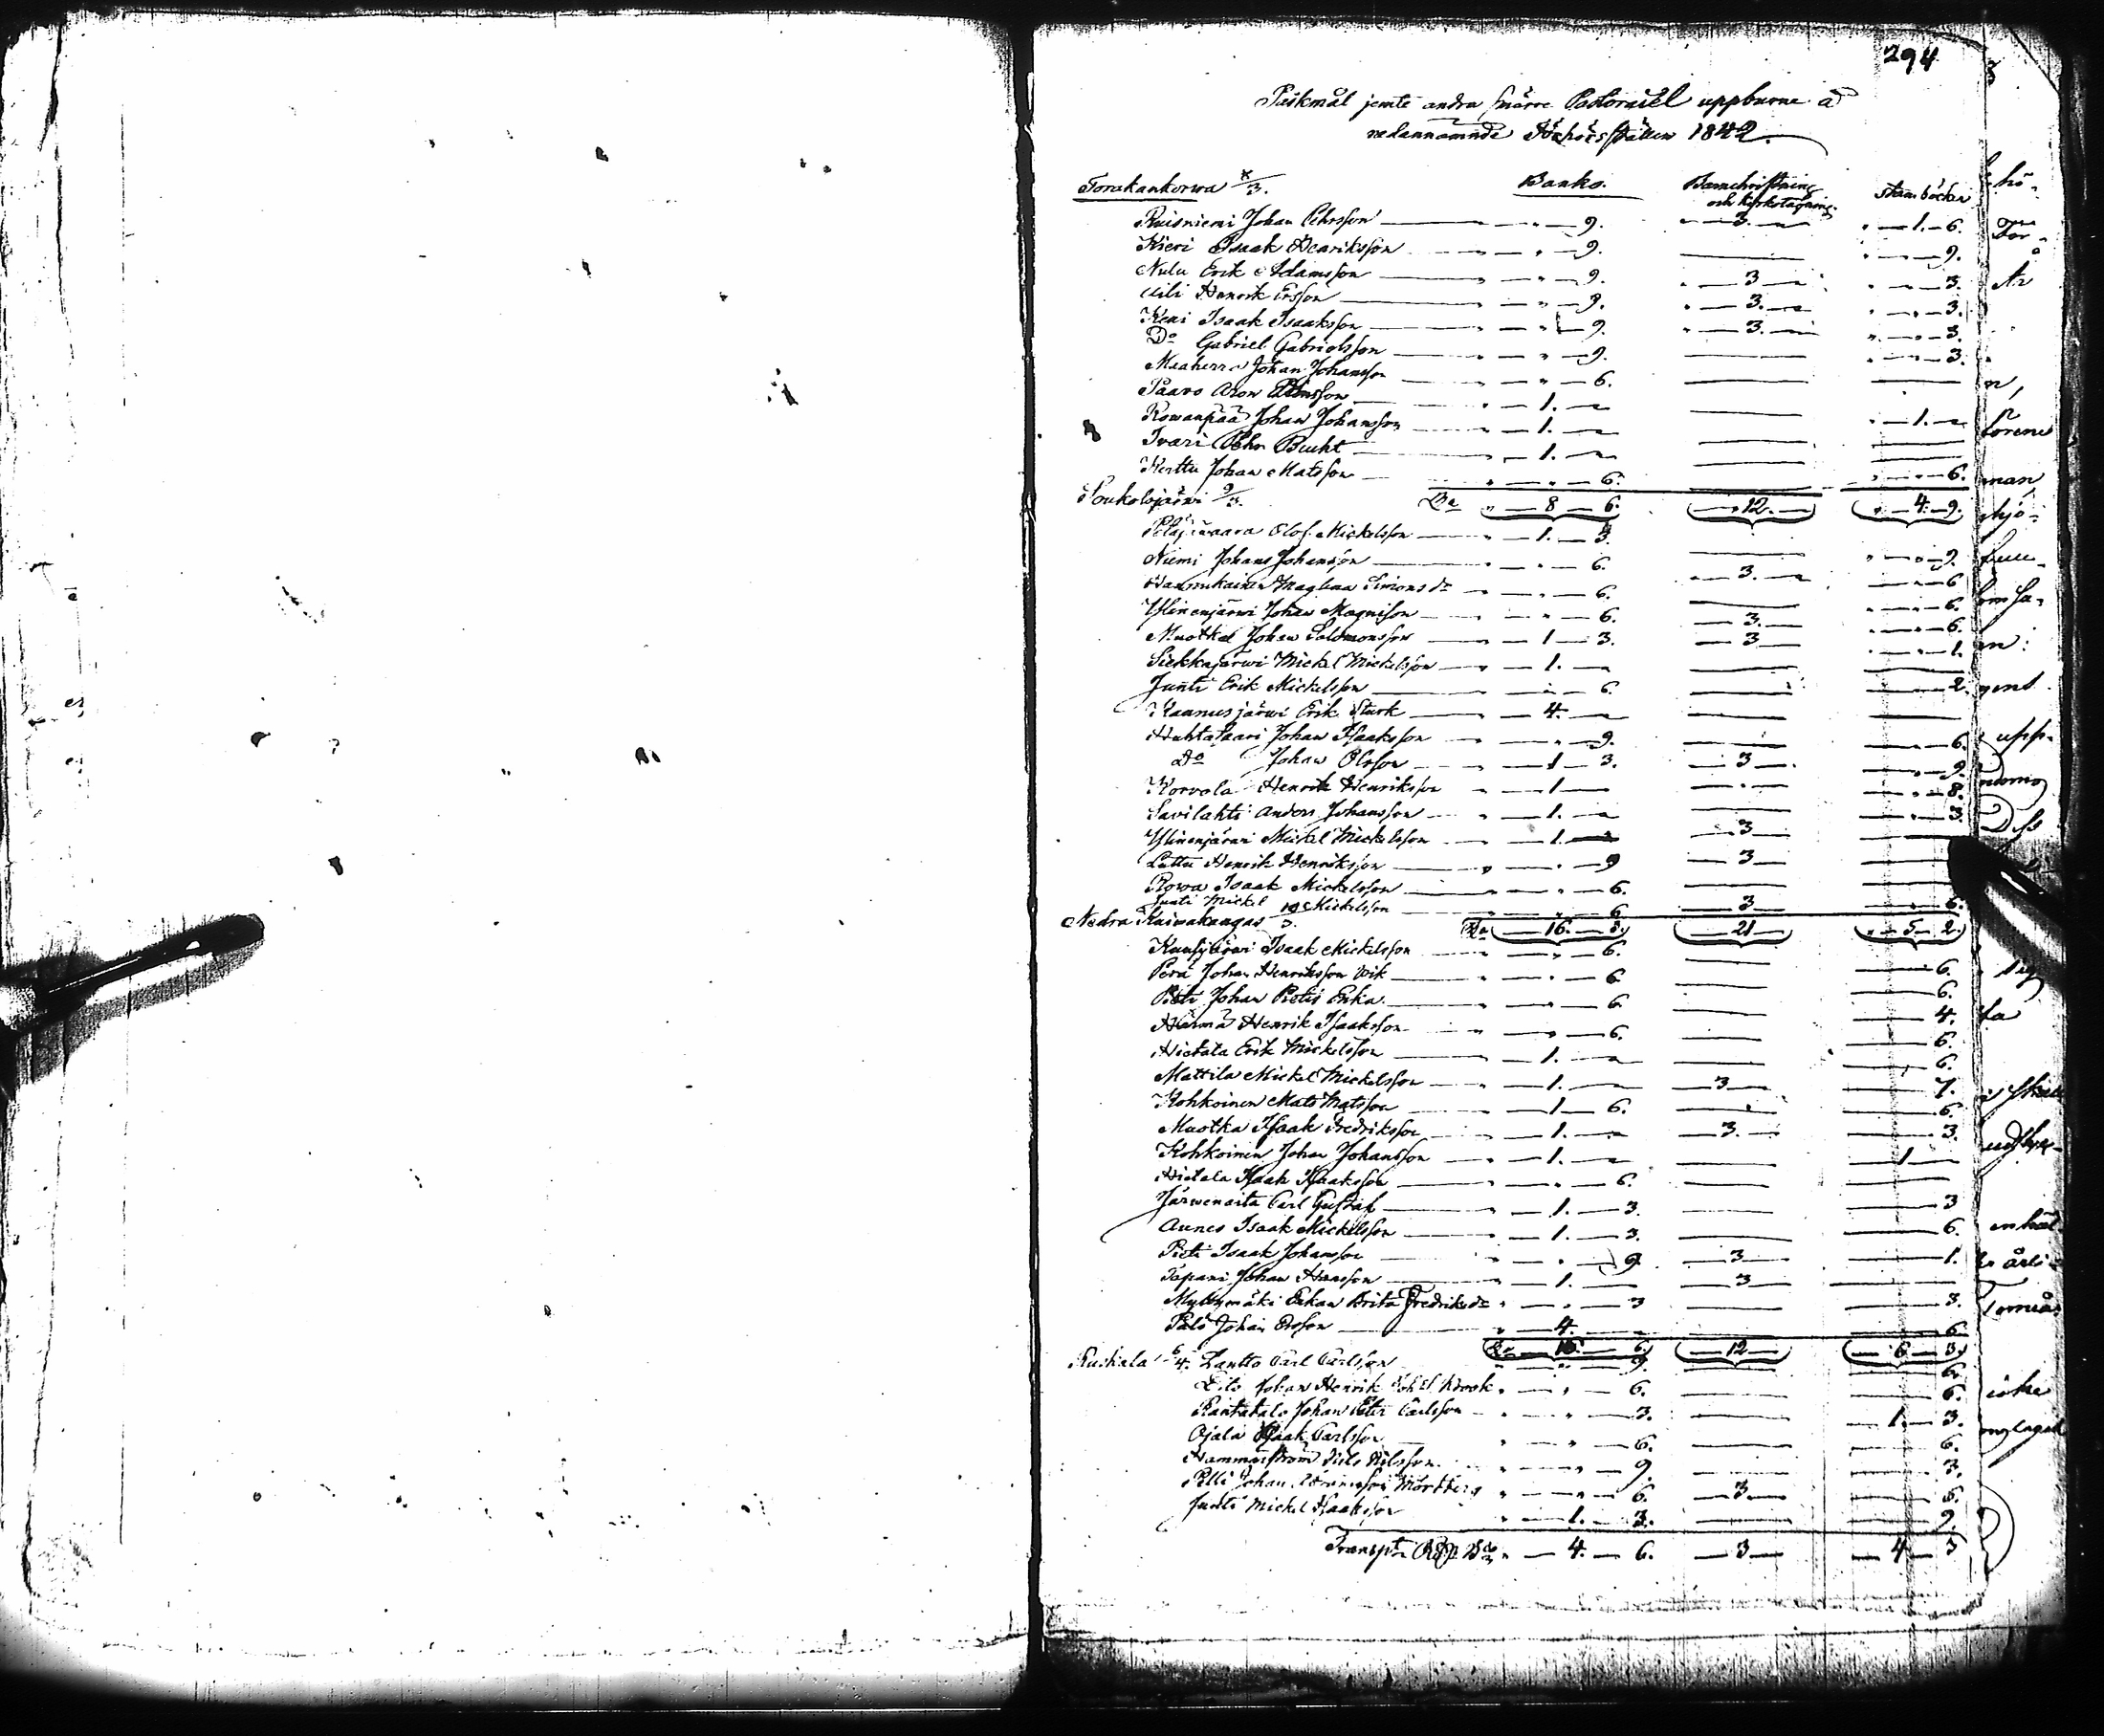 294
Påskmål jemte andra smärre Pastoralel uppburne å
nedannämnde Förhörsställen 1842.
Torakankorva 8/3. Banko. Barnchristning och kyrkotagning. Stambäcken
Ruisniemi Johan Pehrsson " — " — 9. " — 3. — " — 1. — 6.
Kieri Isaak Henriksson " — " — 9. — " — " — 9.
Nulu Erik Adamsson " — " — 9. " — 3 — " — " — 3.
Uili Henrik Ersson " — " — 9. " — 3. — " — " — 3.
Keri Isaak Isaaksson " — " — 9. " — 3. — " — " — 3.
Do Gabriel Gabrielsson " — " — 9. — " — " — 3.
Maaherra Johan Johansson " — " — 6. — —
Paavo Aron " — 1. — —
Rowanpää Johan Johansson " — 1. — — " — 1. —
Ivari Pehr Bucht " — 1. — — —
Kerttu Johan Matsson " — " — 6. — " — " — 6.
Soukolojärvi 9/3. Bo " — 8 — 6. — 12. — " — 4. — 9.
Petäjävaara Olof Mickelsson " — 1. — 3. — " — " — 9.
Niemi Johan Johansson " — " — 6. — 3. — " — " — 6
Hannukainen Maglena Simonsdr " — " — 6. — " — " — 6.
Ylinenjärvi Johan Magnisson " — " — 6. — 3. — " — " — 6.
Muotka Johan Salomonsson " — 1 — 3. — 3 — " — " — 1.
Siekkajärwi Mickel Mickelsson " — 1. — — —
Junti Erik Mickelsson — " — 6. — — 2.
Kaanusjärwi Erik Stark — 4. — — —
Huhtasaari Johan Isaaksson — " — 9. — — " — 6.
Do Johan Olsson — 1 — 3. — 3 — — " — 9.
Korvola Henrik Henriksson " — 1 — — " — — " — 8.
Savilahti Anders Johansson " — 1. — — " — " — 3.
Ylinenjärvi Mickel Mickelsson " — 1. — — 3 — —
Lutta Henrik Henriksson " — " — 9 — 3 — —
Rowa Isaak Mickelsson " — " — 6. — —
Junti Mickel Mickelsson " — " — 6 — 3 — " — 6.
Nedra Kuiwakangas 10/3. Bo — 16. — — 21 — " — 5 — 2.
Isaak Mickelsson — " — 6. — — 6.
Perä Johan Henriksson Wik " — " — 6 — — 6.
Pieti Johan Pietis Enka " — " — 6. — — 4.
Härmä Henrik Isaaksson " — " — 6. — — 6.
Hietala Erik Mickelsson — 1. — — — 6.
Mattila Mickel Mickelsson " — 1. — — 3 — — 7.
Kohkoinen Mats Matsson " — 1 — 6. — — 6.
Muotka Isaak Fredriksson " — 1. — — 3. — — 3.
Kohkoinen Johan Johansson " — 1. — — — 1 —
Hietala Isaak Isaaksson " — " — 6. — —
Järwenaita Carl Gustaf — 1. — 3. — — 3
Aunes Isaak Mickelsson — 1. — 3. — — 6.
Pieti Isaak Johansson " — " — 9 — 3 — — 1.
Tapani Johan Hansson " — 1. — — 3 — —
Myllymäki Enkan Brita Fredriksdr " — " — 3 — — 3.
Palo Johan Ersson " — 4. — — — 6.
Bo — — 6. — 12 — — 6 — 3.
Ruskala 6/4. Lantto Carl Carlsson " — " — 9. — — 6.
Johan Henrik " — " — 6. — — 6.
Rantatalo Johan Petter Carlsson " — " — 3. — — 1. — 3.
Ojala Isaak Carlsson " — " — 6. — — 6.
Hammarström Nils Nilsson " — " — 9. — — 3.
Pelli Johan Mörtberg " — " — 6. — 3 — — 6.
Junti Mickel Isaaksson " — 1. — 3. — — 9.
Transpt RD Bo " — 4. — 6. — 3 — — 4 — 3